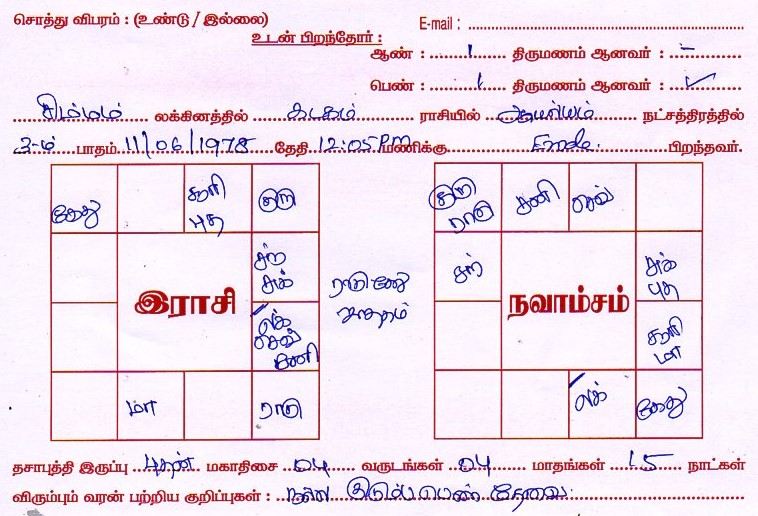 சொத்து விபரம் : (உண்டு / இல்லை) E-mail :
உடன் பிறந்தோர் :
ஆண் : 1 திருமணம் ஆனவர் : –
பெண் : 1 திருமணம் ஆனவர் : ✓
சிம்மம் லக்கினத்தில் கடகம் ராசியில் ஆயில்யம் நட்சத்திரத்தில்
3-ம் பாதம் 11/06/1978 தேதி 12:05 PM மணிக்கு Erode. பிறந்தவர்.
கேது சூரி புத குரு
குரு ராகு சனி செவ்
சந் சுக்
ராகு கேது
சந் சுக் புத
இராசி
நவாம்சம்
லக் செவ் சனி
சூரி மா
மா ராகு
லக் கேது
தசாபுத்தி இருப்பு புதன் மகாதிசை 04 வருடங்கள் 04 மாதங்கள் 15 நாட்கள்
விரும்பும் வரன் பற்றிய குறிப்புகள் : நல்ல குடும்ப பெண் தேவை.